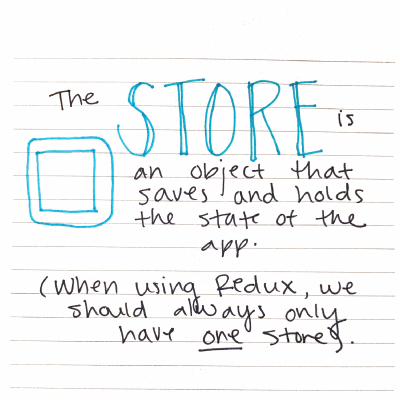 The STORE is
an object that
saves and holds
the state of the
app.
(When using Redux, we
should always only
have one store).